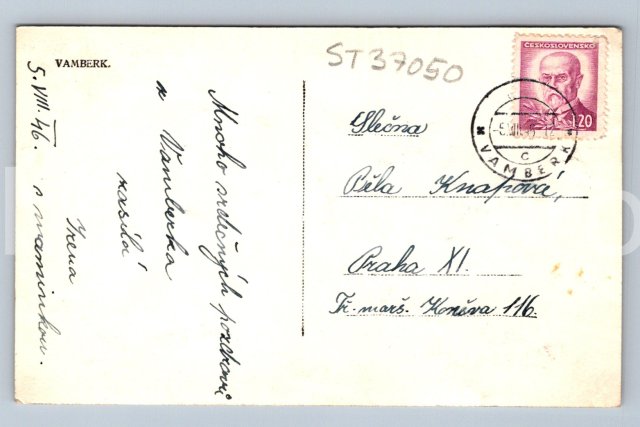 VAMBERK.
ST 37050
5. VIII. 46.
Mnoho srdečných pozdravů
z Vamberka
zasílá
Irena
s maminkou.
ČESKOSLOVENSKO
1.20
VAMBERK
C
Slečna
Běla Knapová,
Praha XI.
Tř. marš. Koněva 116.